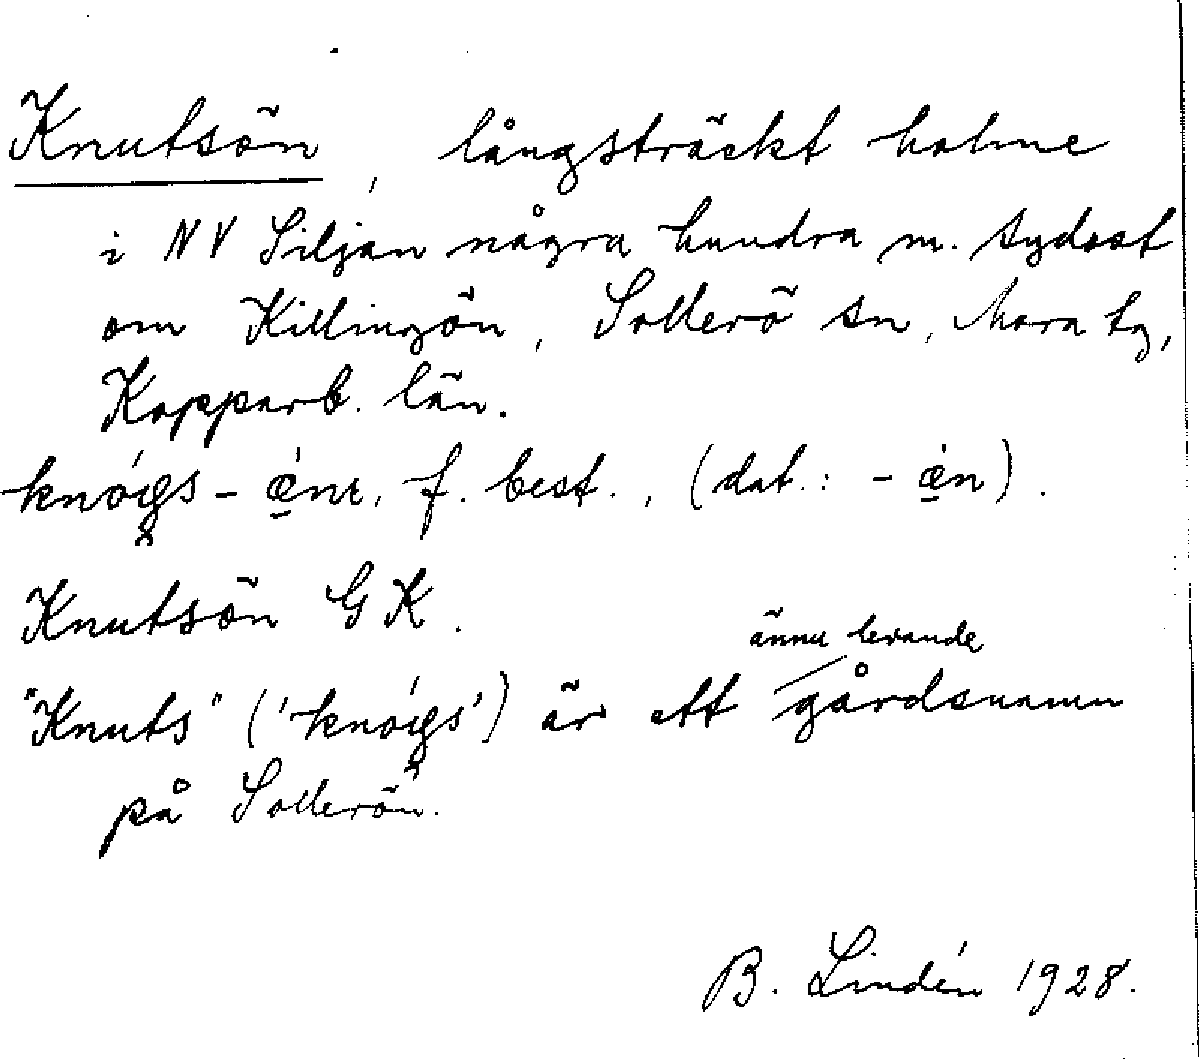 Knutsön, långsträckt holme
i NV Siljan några hundra m. sydost
om Killingön, Sollerö sn, Mora tg,
Kopparb. län.
f. best., (dat.: - œ̣́n).
Knutsön GK.
ännu levande
"Knuts" är ett gårdsnamn
på Sollerön.
B. Lindén 1928.